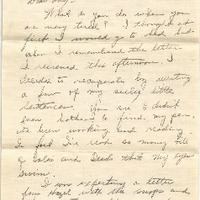 Dear Guy:
What do you do when you
are very tired? I thought at
first I would go to bed but
when I remembered the letter
I received this afternoon. I
decided to recuperate by writing
a few of my silly little
sentences. You see I didn't
even bother to find my pen.
It's been working and reading.
In fact I've read so many bills
of Sales and Deeds that my eyes
I am expecting a letter
from Hazel with the snaps and